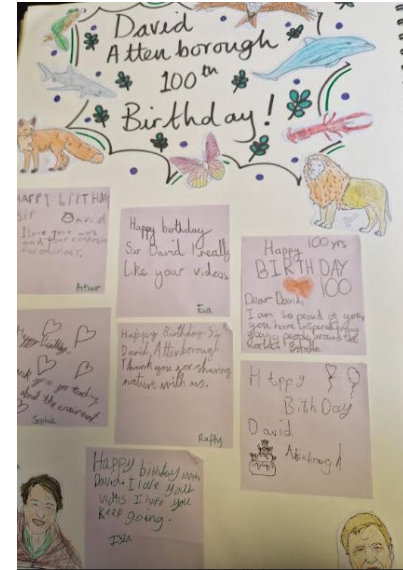 David
Attenborough
100th
Birthday!
HAPPY BIRTHDAY
Sir David
I love your work
and your
for animals.
Arthur
Happy birthday
Sir David I really
Like your videos
Eva
Happy 100 yrs
BIRTHDAY
100
Dear David,
I am so proud of you
you have inspired many
young people around the
world!
Happy Birthday,
you for teaching
about the environment
Sophia
Happy Birthday Sir
David, Attenborough.
Thank you for sharing
nature with us.
Rafty
Happy
BithDay
David
Happy birthday 100th
David. I love your
videos I hope you
Keep going.
Isla